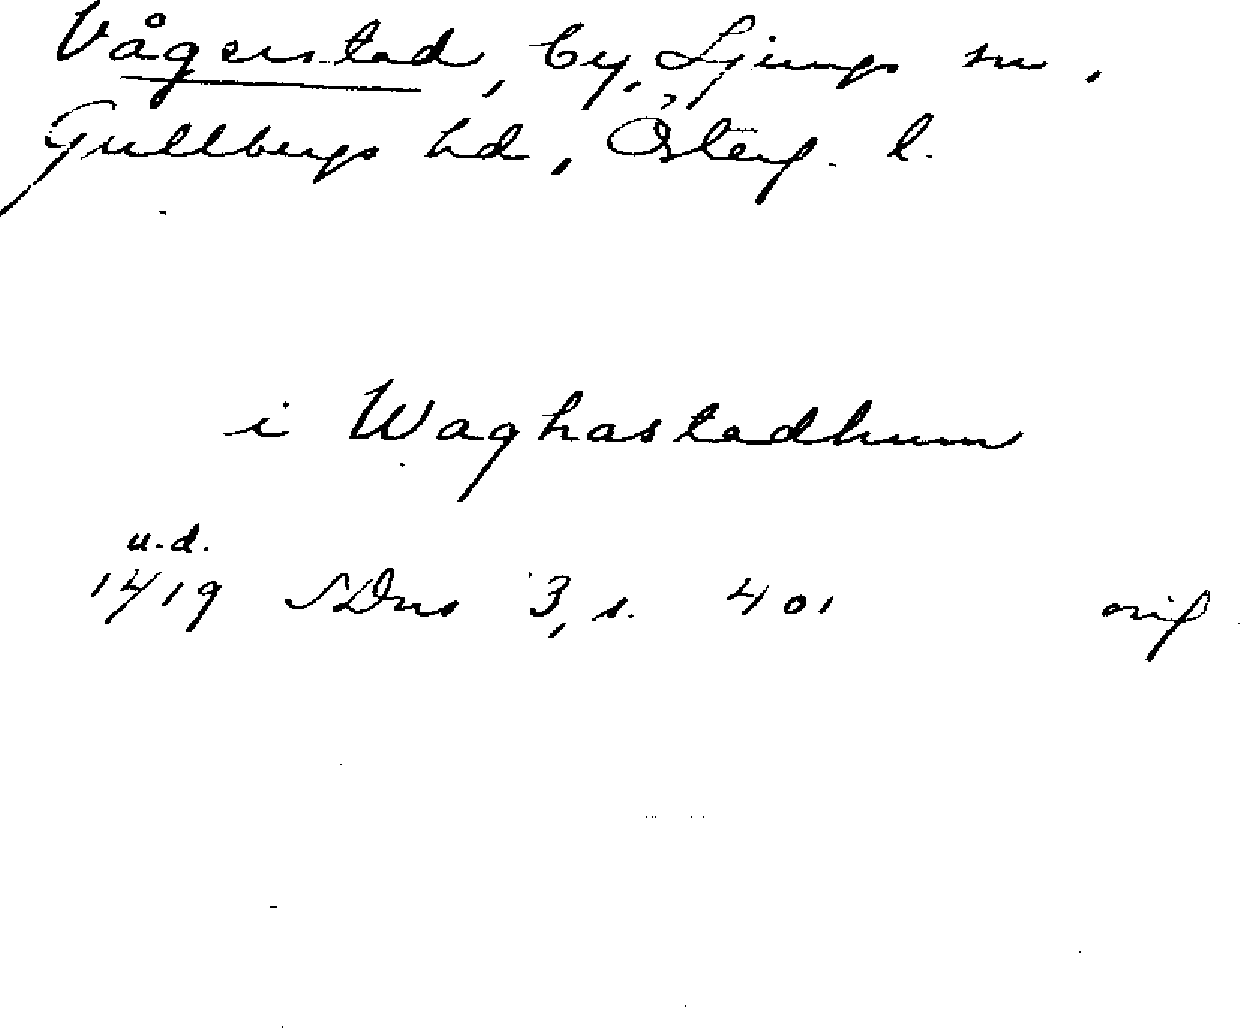 Vågerstad, by, Ljungs sn.
Gullbergs hd, Österg. l.
i Waghastadhum
u.d.
1419 SDns 3, s. 401 orig